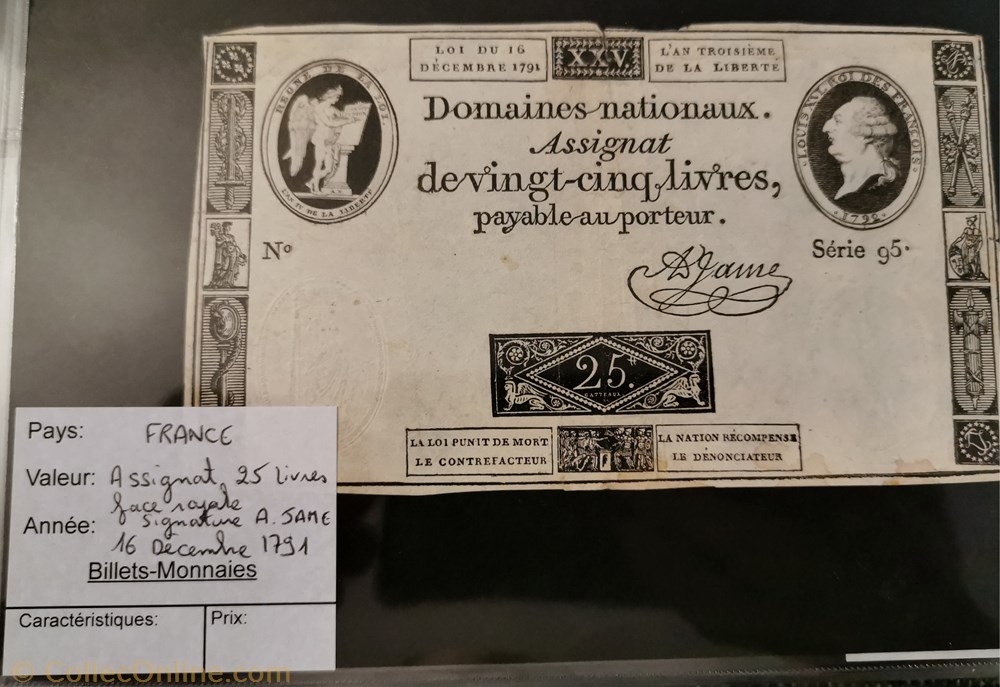 LOI DU 16
DÉCEMBRE 1791
XXV
L'AN TROISIÈME
DE LA LIBERTÉ
REGNE DE LA LOI.
L'AN IV DE LA LIBERTÉ
Domaines nationaux.
Assignat
de vingt-cinq livres,
payable au porteur.
LOUIS XVI ROI DES FRANÇOIS
1792
No
Série 95.
A Jame
25.
GATTEAUX
LA LOI PUNIT DE MORT
LE CONTREFACTEUR
LA NATION RÉCOMPENSE
LE DÉNONCIATEUR
Pays: FRANCE
Valeur: Assignat 25 livres
face royale
Année: signature A. JAME
16 Décembre 1791
Billets-Monnaies
Caractéristiques:
Prix:
© CollecOnline.com